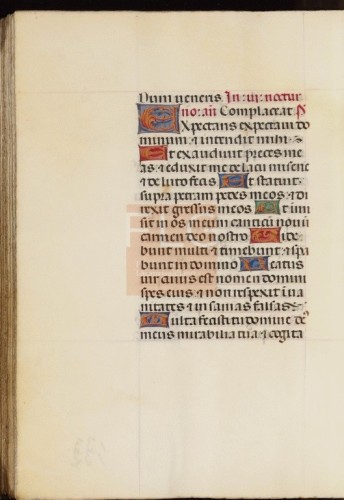 Dum veneris. In .iii. noctur
no. añ Complaceat. ps
Expectans expectavi do
minum: & intendit mihi.
Et exaudivit preces me
as: & eduxit me de lacu miserie
& de luto fecis. Et statuit
supra petram pedes meos: & di
rexit gressus meos. Et im
misit in os meum canticum novum
carmen deo nostro. Vide
bunt multi & timebunt: & spe
rabunt in domino. Beatus
vir cuius est nomen domini
spes eius: & non respexit in va
nitates & insanias falsas.
Multa fecisti tu domine de9
meus mirabilia tua: & cogita